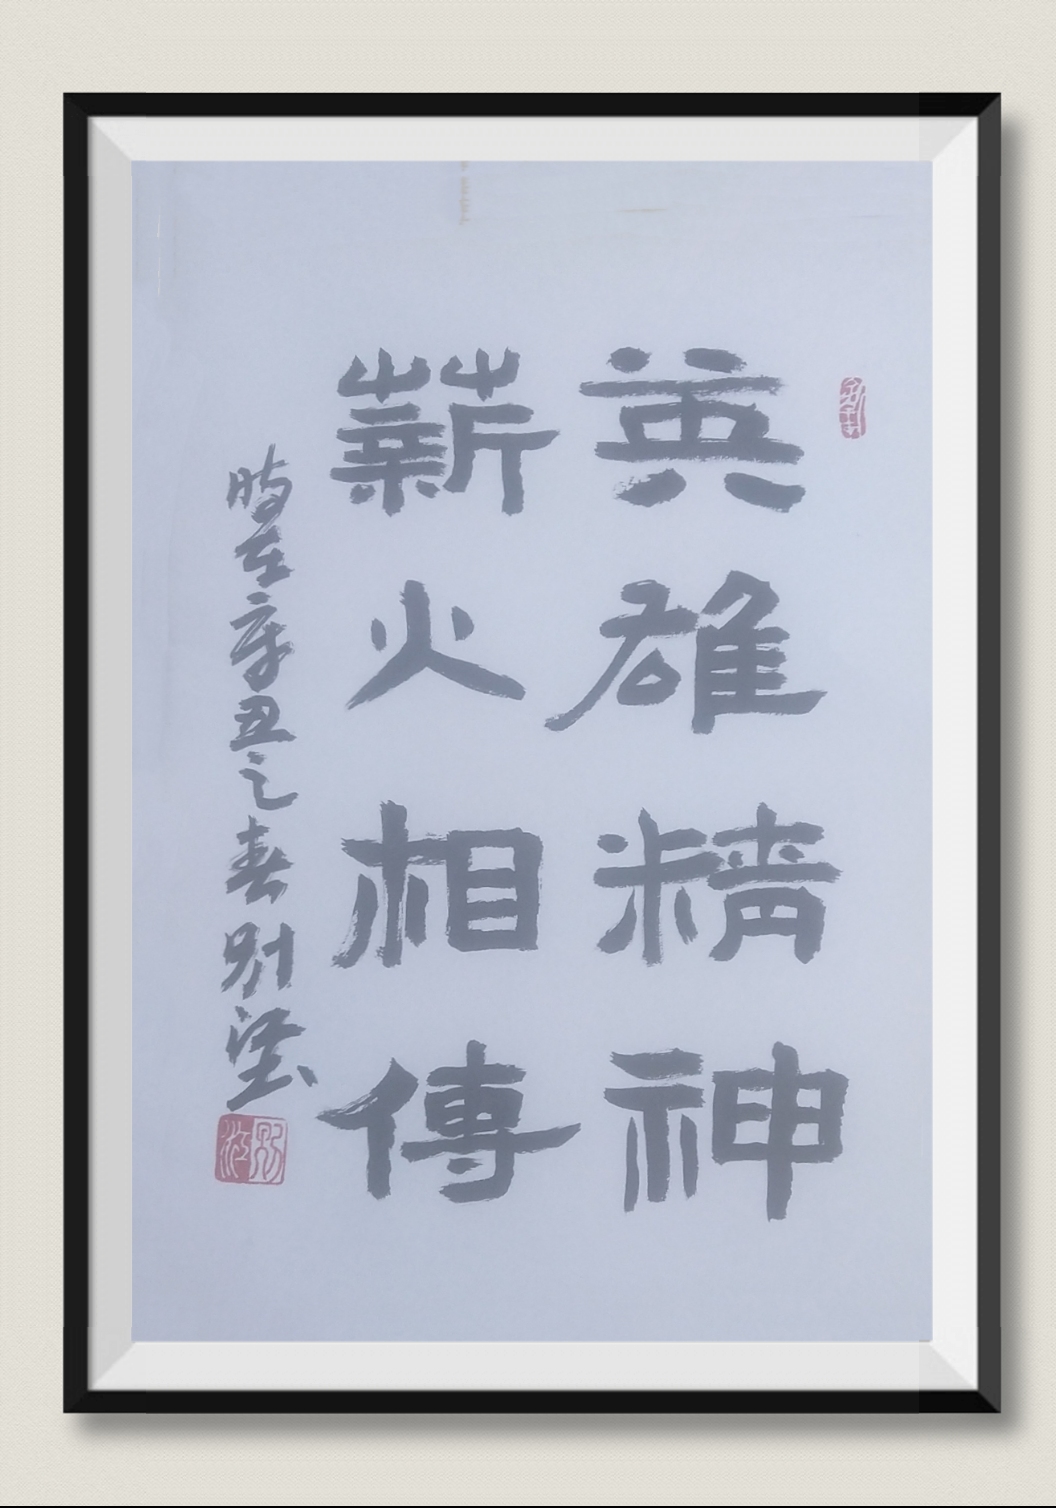 英雄精神
薪火相傳
時在辛丑之春別